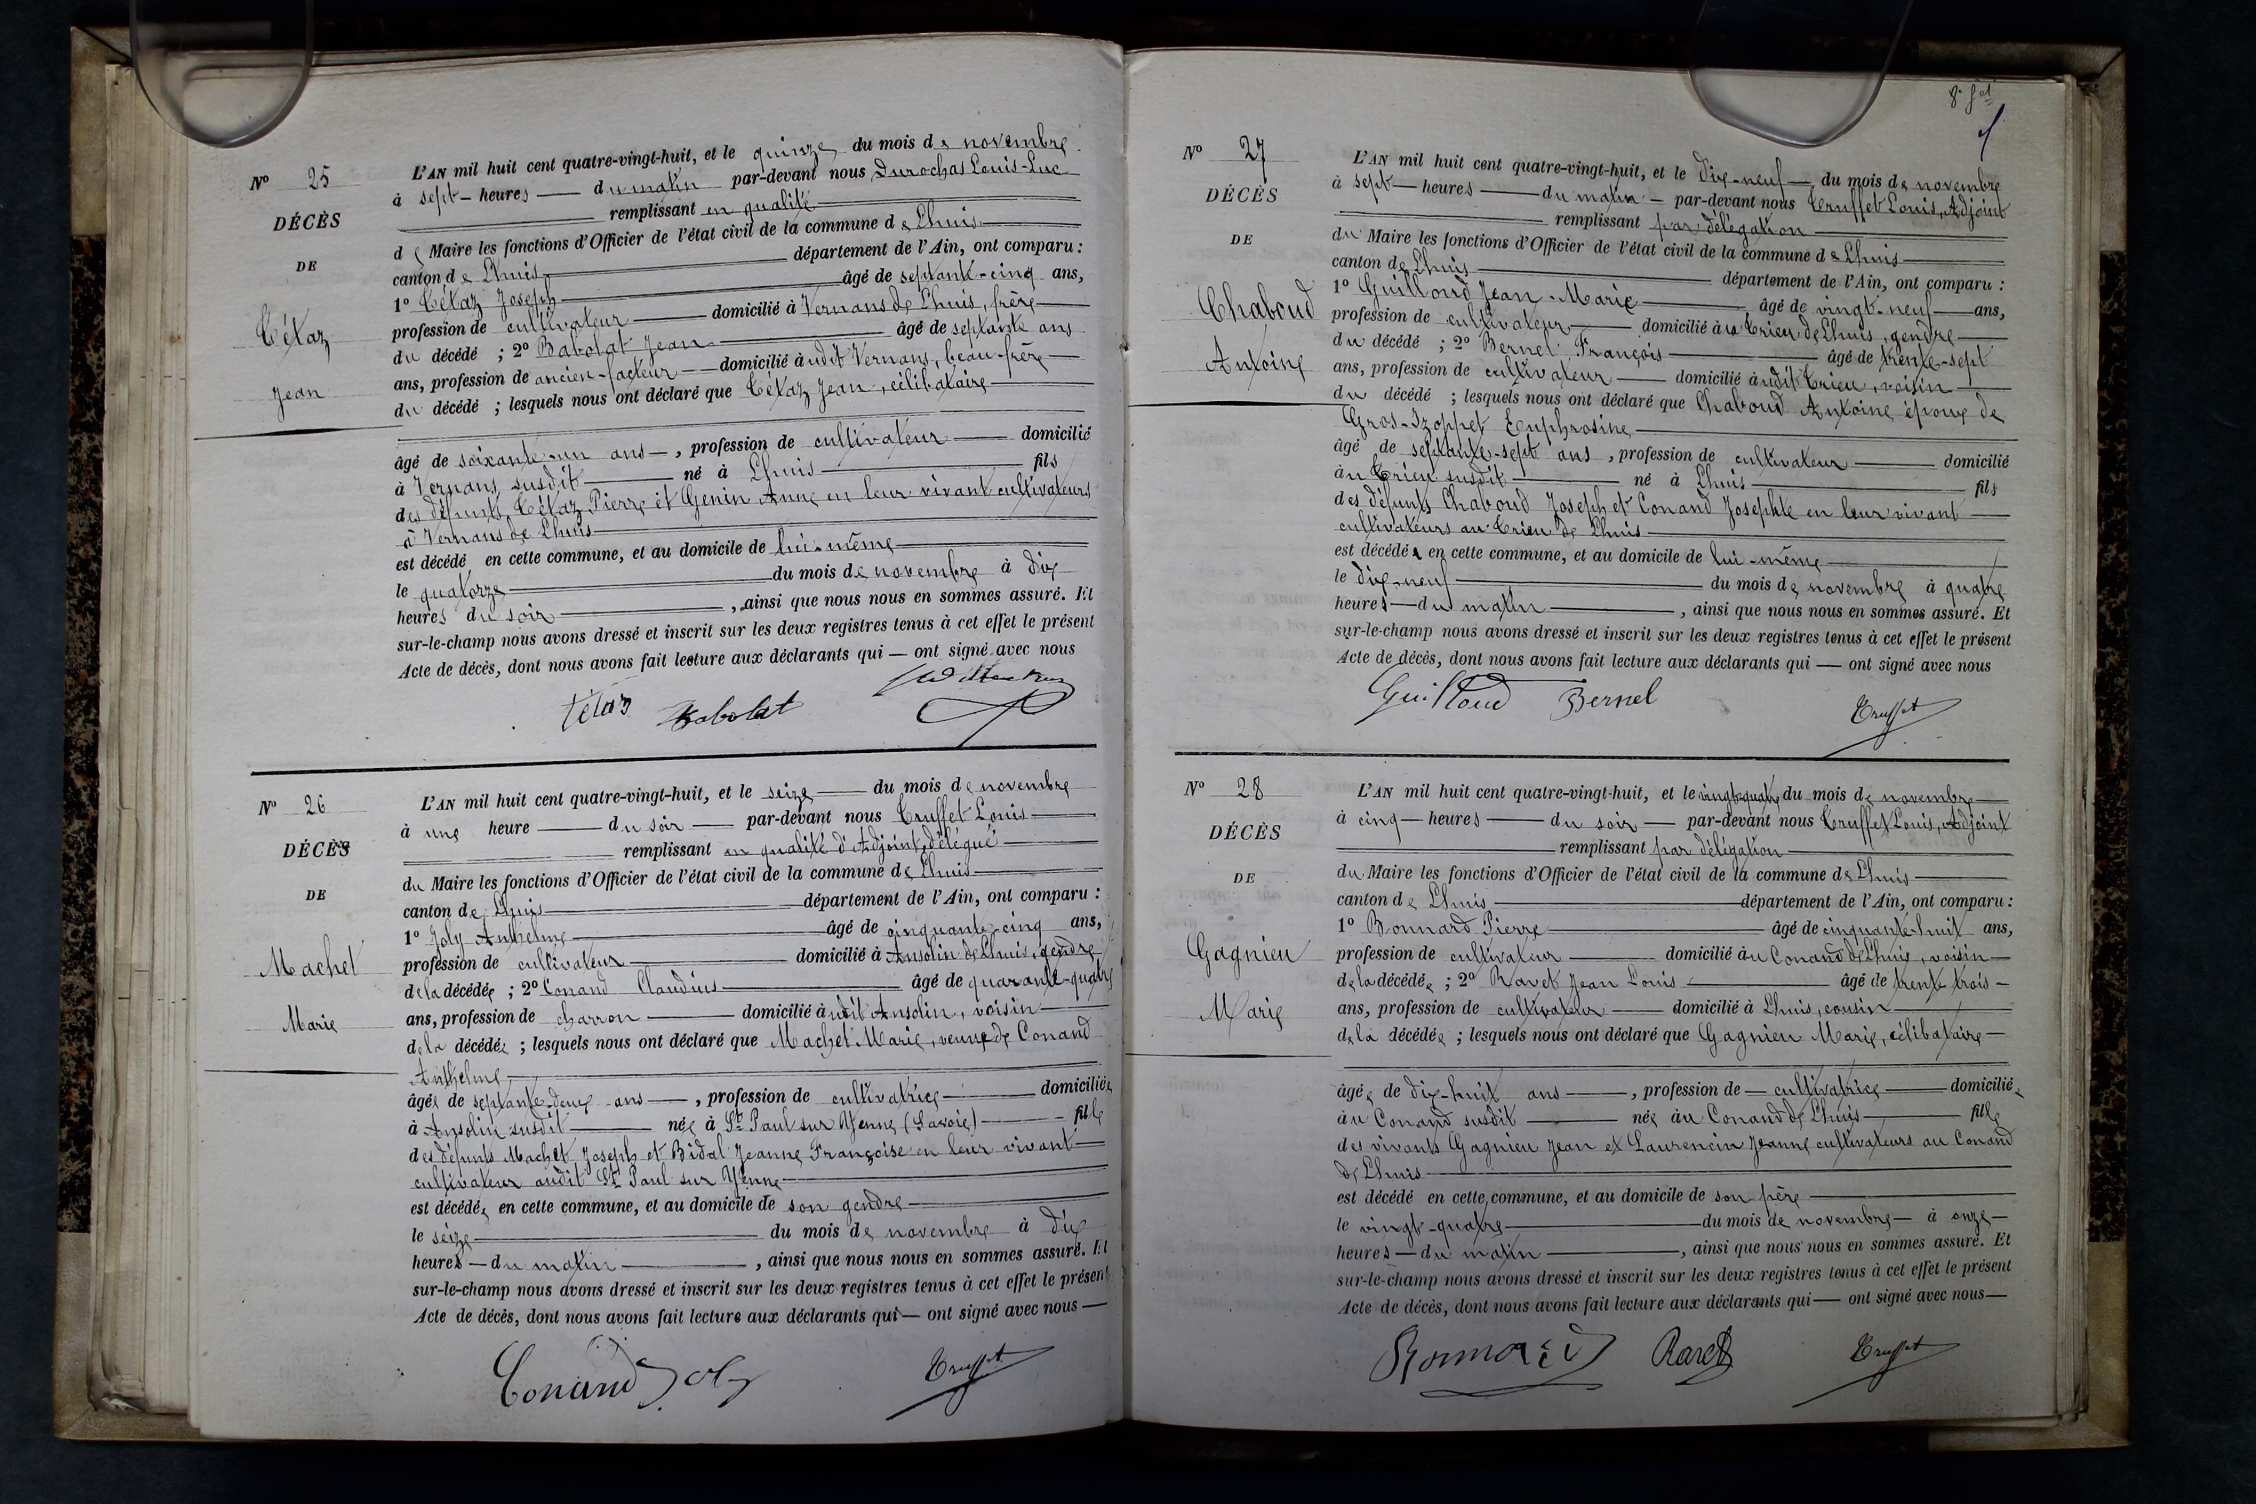 N° 25
DÉCÈS
DE
Tétaz
Jean
L'AN mil huit cent quatre-vingt-huit, et le quinze du mois de novembre
à sept heures du matin par-devant nous Durochas Louis-Luc
remplissant en qualité
de Maire les fonctions d'Officier de l'état civil de la commune de Lhuis
canton de Lhuis département de l'Ain, ont comparu :
1° Tétaz Joseph âgé de septante-cinq ans,
profession de cultivateur domicilié à Vernans de Lhuis, frère
du décédé ; 2° Babolat Jean âgé de septante ans
ans, profession de ancien-facteur domicilié àudit Vernans, beau-frère
du décédé ; lesquels nous ont déclaré que Tétaz Jean, célibataire
âgé de soixante-un ans, profession de cultivateur domicilié
à Vernans susdit né à Lhuis fils
des défunts Tétaz Pierre et Genin Anne en leur vivant cultivateurs
à Vernans de Lhuis
est décédé en cette commune, et au domicile de lui-même
le quatorze du mois de novembre à dix
heures du soir, ainsi que nous nous en sommes assuré. Et
sur-le-champ nous avons dressé et inscrit sur les deux registres tenus à cet effet le présent
Acte de décès, dont nous avons fait lecture aux déclarants qui — ont signé avec nous
Tétaz Babolat
N° 26
DÉCÈS
DE
Machet
Marie
L'AN mil huit cent quatre-vingt-huit, et le seize du mois de novembre
à une heure du soir par-devant nous Truffet Louis
remplissant en qualité d'Adjoint délégué
du Maire les fonctions d'Officier de l'état civil de la commune de Lhuis
canton de Lhuis département de l'Ain, ont comparu :
1° Joly Anthelme âgé de cinquante-cinq ans,
profession de cultivateur domicilié à Ansolin de Lhuis, gendre
de la décédée ; 2° Conand Claudius âgé de quarante-quatre
ans, profession de charron domicilié àudit Ansolin, voisin
de la décédée ; lesquels nous ont déclaré que Machet Marie, veuve de Conand
Anthelme
âgée de septante-deux ans, profession de cultivatrice domiciliée
à Ansolin susdit née à St Paul sur Yenne (Savoie) fille
des défunts Machet Joseph et Bidal Jeanne Françoise en leur vivant
cultivateur audit St Paul sur Yenne
est décédée en cette commune, et au domicile de son gendre
le seize du mois de novembre à dix
heures — du matin, ainsi que nous nous en sommes assuré. Et
sur-le-champ nous avons dressé et inscrit sur les deux registres tenus à cet effet le présent
Acte de décès, dont nous avons fait lecture aux déclarants qui — ont signé avec nous —
Conand Joly Truffet
N° 27
DÉCÈS
DE
Chaboud
Antoine
L'AN mil huit cent quatre-vingt-huit, et le dix-neuf du mois de novembre
à sept heures du matin par-devant nous Truffet Louis, Adjoint
remplissant par délégation
du Maire les fonctions d'Officier de l'état civil de la commune de Lhuis
canton de Lhuis département de l'Ain, ont comparu :
1° Guilloud Jean-Marie âgé de vingt-neuf ans,
profession de cultivateur domicilié au Crieu de Lhuis, gendre
du décédé ; 2° Bernel François âgé de trente-sept
ans, profession de cultivateur domicilié àudit Crieu, voisin
du décédé ; lesquels nous ont déclaré que Chaboud Antoine époux de
Gros-Izoppet Euphrosine
âgé de septante-sept ans, profession de cultivateur domicilié
àu Crieu susdit né à Lhuis fils
des défunts Chaboud Joseph et Conand Josephte en leur vivant
cultivateurs au Crieu de Lhuis
est décédé en cette commune, et au domicile de lui-même
le dix-neuf du mois de novembre à quatre
heures — du matin, ainsi que nous nous en sommes assuré. Et
sur-le-champ nous avons dressé et inscrit sur les deux registres tenus à cet effet le présent
Acte de décès, dont nous avons fait lecture aux déclarants qui — ont signé avec nous
Guilloud Bernel Truffet
N° 28
DÉCÈS
DE
Gagnieu
Marie
L'AN mil huit cent quatre-vingt-huit, et le vingt-quatre du mois de novembre
à cinq heures du soir par-devant nous Truffet Louis, Adjoint
remplissant par délégation
du Maire les fonctions d'Officier de l'état civil de la commune de Lhuis
canton de Lhuis département de l'Ain, ont comparu :
1° Bonnard Pierre âgé de cinquante-huit ans,
profession de cultivateur domicilié àu Conand de Lhuis, voisin
de la décédée ; 2° Ravet Jean Louis âgé de trente trois
ans, profession de cultivateur domicilié à Lhuis, cousin
de la décédée ; lesquels nous ont déclaré que Gagnieu Marie, célibataire
âgée de dix-huit ans, profession de cultivatrice domiciliée
àu Conand susdit née àu Conand de Lhuis fille
des vivants Gagnieu Jean et Laurencin Jeanne cultivateurs au Conand
de Lhuis
est décédé en cette commune, et au domicile de son père
le vingt-quatre du mois de novembre à onze
heures — du matin, ainsi que nous nous en sommes assuré. Et
sur-le-champ nous avons dressé et inscrit sur les deux registres tenus à cet effet le présent
Acte de décès, dont nous avons fait lecture aux déclarants qui — ont signé avec nous —
Bonnard Ravet Truffet